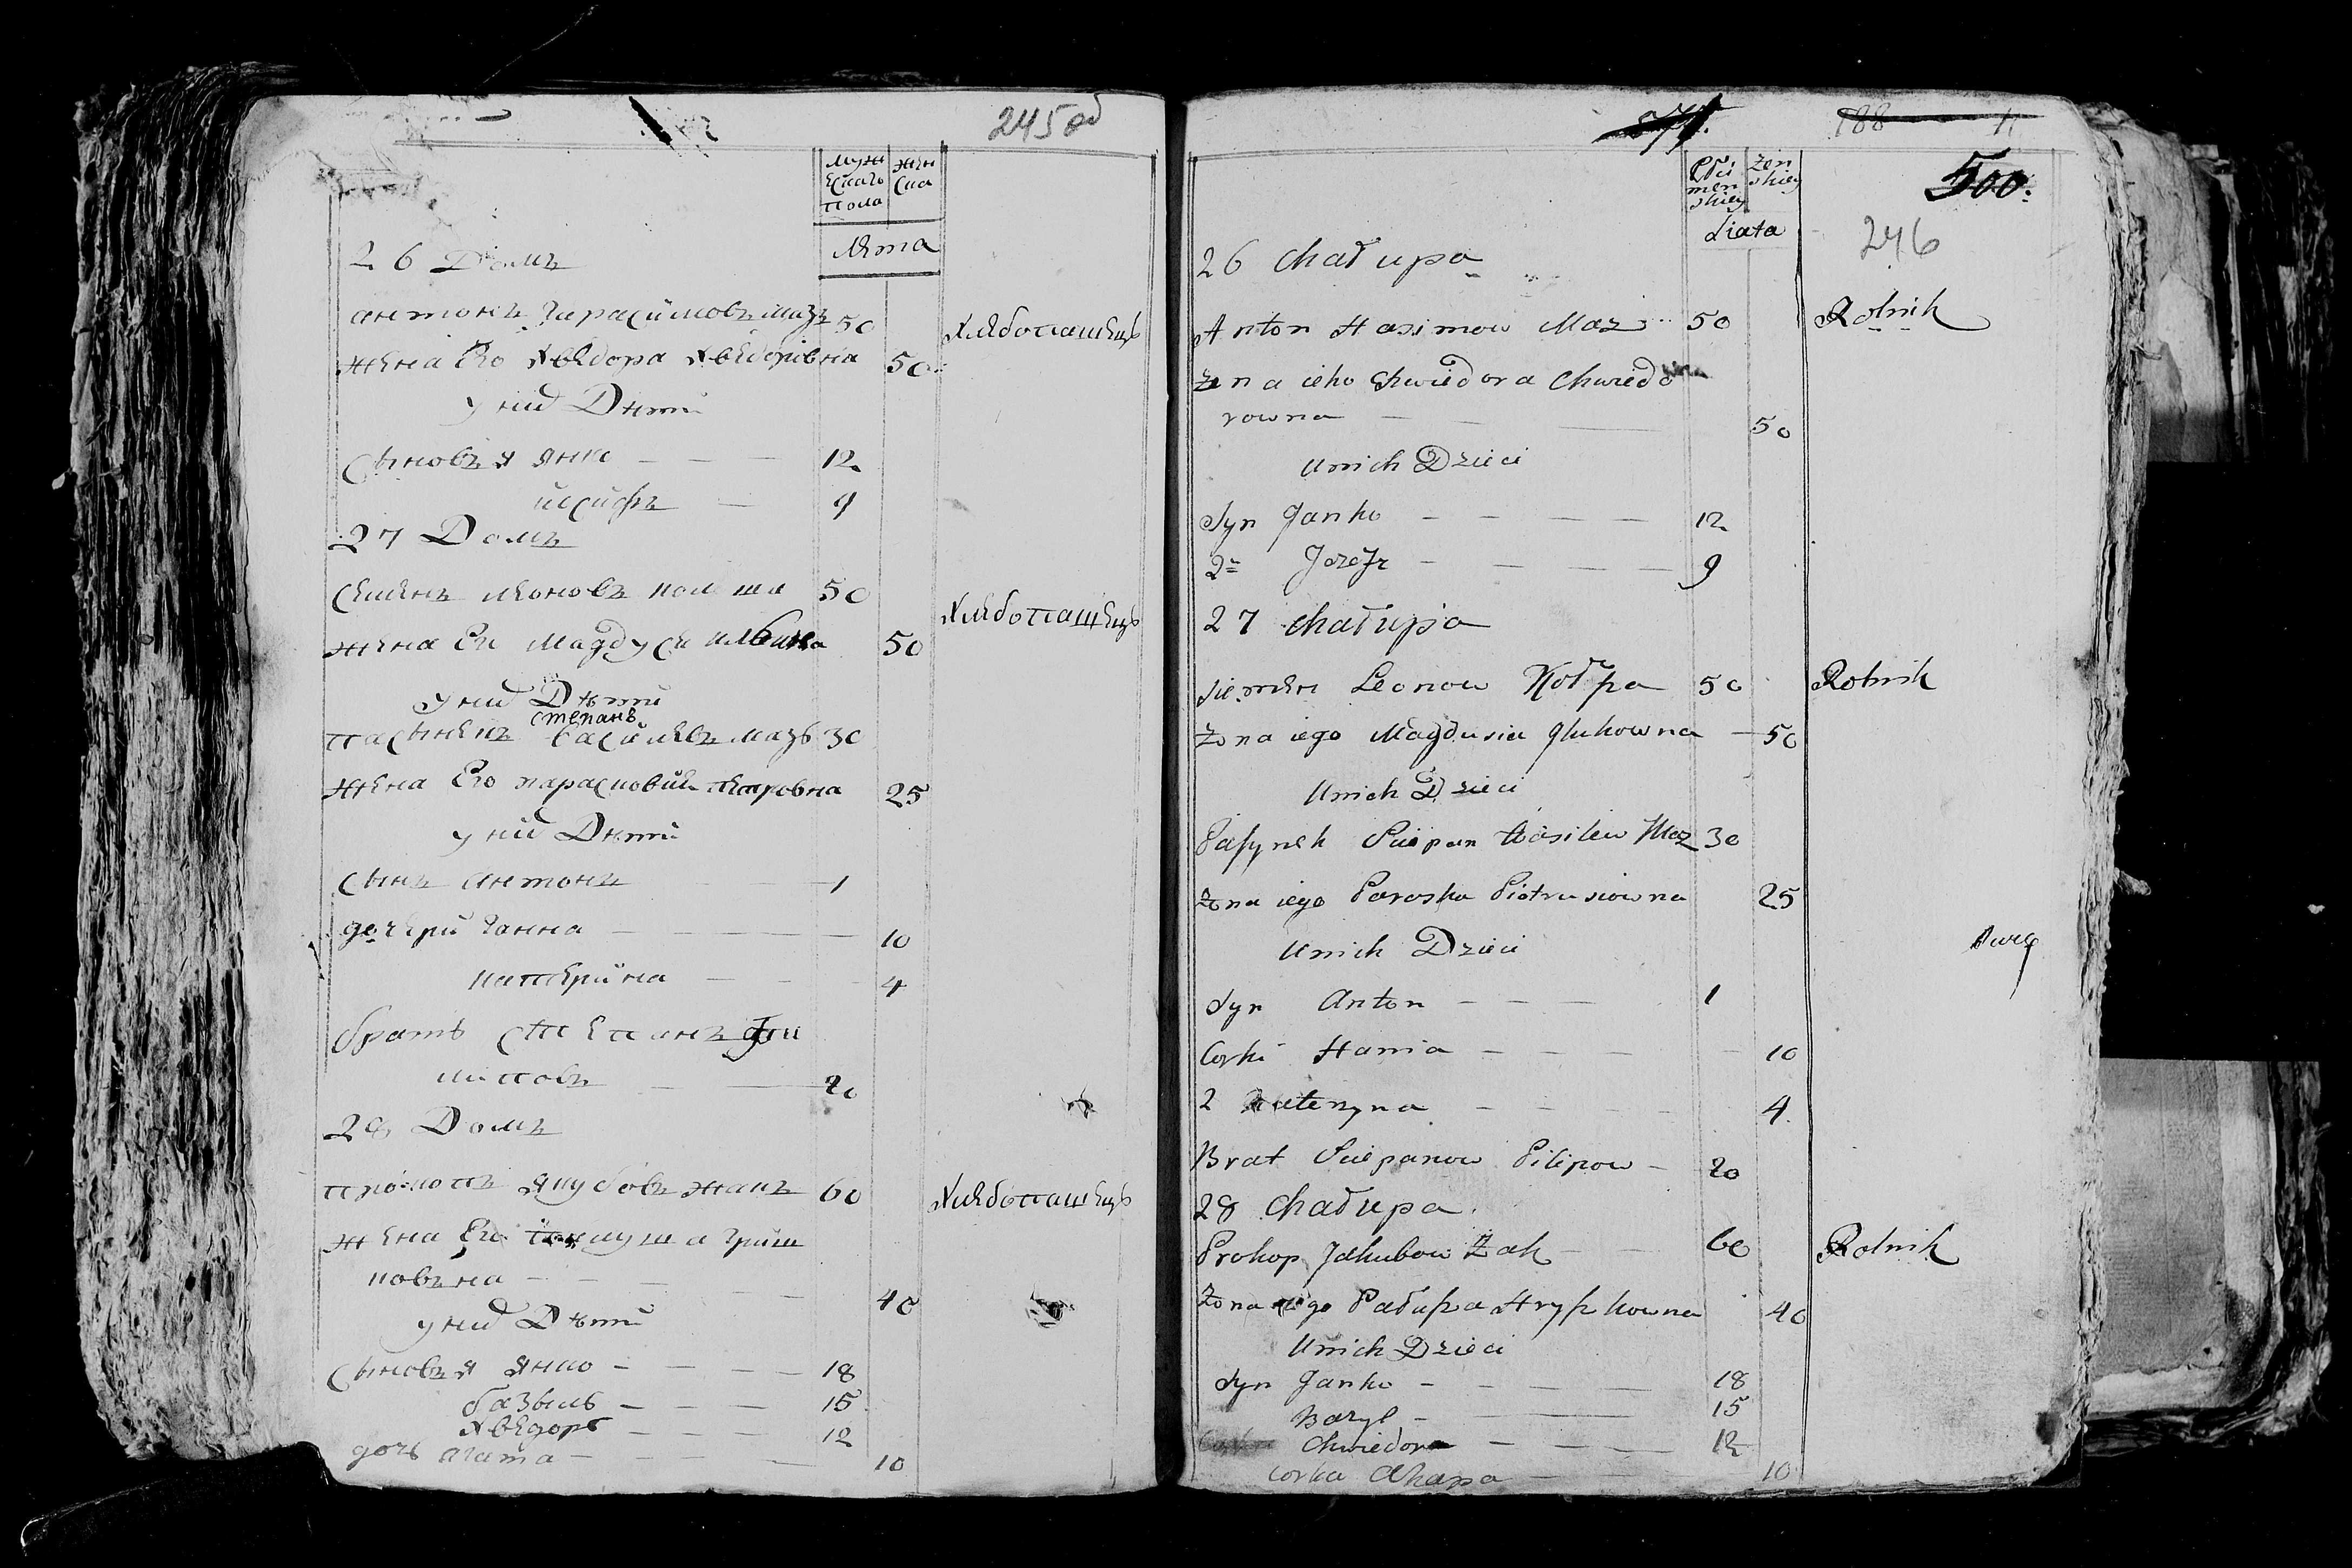 245 об
Муж
Ескаго
пола
жен
ска
Лета
26 Домъ
антонъ гарасимовъ мазъ 50 Хлебопашецъ
жена Его Хведора Хведорівна 50
у ниd Дѣти
Сыновъя Янко — — — 12
исифъ — 9
27 Домъ
Семенъ Леоновъ 50 Хлебопашецъ
жена Ег Магдуся 50
у ниd Дѣти
степанъ
пасынекъ василевъ мазъ 30
жена Его парасковия петровна 25
у ниd Дѣти
Сынъ антонъ — 1
дочери ганна — — — 10
катерина — — 4
братъ степанъ
20
28 Домъ
прокопъ Якубовъ жакъ 60 Хлебопашецъ
жена Его гриш
ковъна — — — 40
у ниd Дѣти
Сыновъя Янко — — — 18
базыль — — — 15
Хведоръ — — — 12
дочь агата — — — 10
188
500.
246
Płci
men
skiey
żen
skiey
Liata
26 Chałupa
Anton Hasimow Maz 50 Rolnik
Żona ieho Chwiedora Chwiedo
rowna — — 50
U nich Dzieci
Syn Janko — — — — 12
2= Jozefr — — — — 9
27 Chałupa
Siemen Leonow Kołpa 50 Rolnik
Żona iego Magdusia — 50
U nich Dzieci
Pasynek Sciepan Wasilew Maz 30
Żona iego Paraska Piotrusiowna 25
U nich Dzieci
Syn Anton — — — 1
Corki Hania — — — 10
2 Kateryna — — — 4
Brat Sciepanow Pilipow — 20
28 Chałupa.
Prokop Jakubow Żak — 60 Rolnik
Żona iego Pałusza Hryszkowna 40
U nich Dzieci
Syn Janko — — — 18
Bazyl — — — 15
Chwiedor — — — 12
Corka Ahapa — — 10